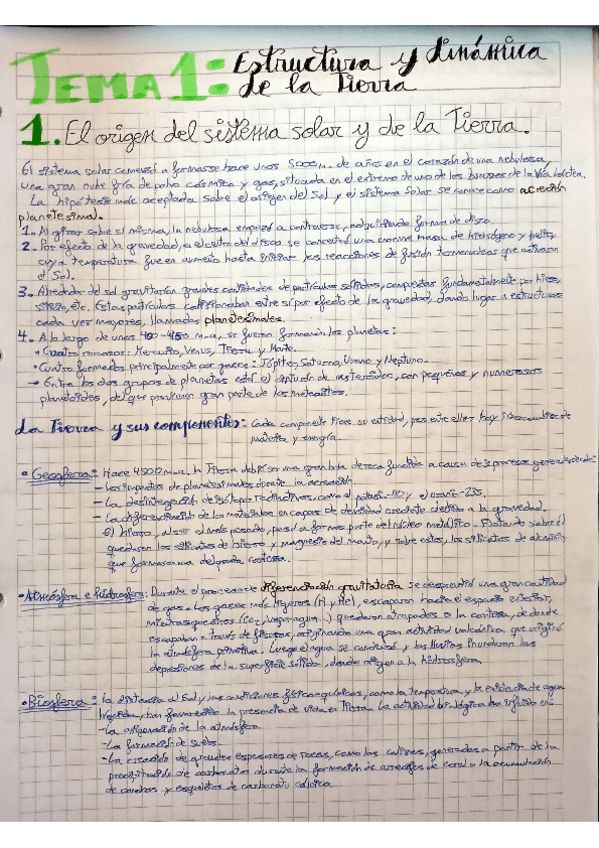 TEMA 1: Estructura y dinámica
de la Tierra
1. El origen del sistema solar y de la Tierra.
El sistema solar comenzó a formarse hace unos 5000 m. de años en el corazón de una nebulosa,
una gran nube fría de polvo cósmico y gas, situada en el extremo de uno de los brazos de la Vía Láctea.
La hipótesis más aceptada sobre el origen del Sol y el sistema Solar se conoce como acreción
planetesimal.
1. Al girar sobre sí misma, la nebulosa empezó a contraerse, adquiriendo forma de disco.
2. Por efecto de la gravedad, en el centro del disco se concentró una enorme masa de hidrógeno y helio,
cuya temperatura fue en aumento hasta iniciar las reacciones de fusión termonuclear que activaron
el Sol.
3. Alrededor del sol gravitarían grandes cantidades de partículas sólidas, compuestas fundamentalmente por hielo,
etc. Estas partículas colisionaban entre sí por efecto de la gravedad, dando lugar a estructuras
cada vez mayores, llamadas planetesimales.
4. A lo largo de unos 400-450 m.a, se fueron formando los planetas:
• Cuatro rocosos: Mercurio, Venus, Tierra y Marte.
• Cuatro formados principalmente por gases: Júpiter, Saturno, Urano y Neptuno.
→ Entre los dos grupos de planetas está el cinturón de asteroides, con pequeños y numerosos
planetoides, del que provienen gran parte de los meteoritos.
La Tierra y sus componentes: Cada componente tiene su entidad, pero entre ellos hay intercambios de
materia y energía.
• Geosfera: Hace 4500 m.a, la Tierra debió ser una gran bola de roca fundida a causa de
- Los impactos de planetesimales durante la acreción.
- La desintegración de isótopos radiactivos, como el potasio-40 y el uranio-235.
- La diferenciación de los materiales en capas de densidad creciente debido a la gravedad.
El hierro, al ser el más pesado, pasó a formar parte del núcleo metálico. Flotando sobre él
quedaron los silicatos de hierro y magnesio del manto, y sobre estos, los silicatos de aluminio,
que formaron una delgada corteza.
• Atmósfera e hidrosfera: Durante el proceso de diferenciación gravitatoria se desprendió una gran cantidad
de gas. Los gases más ligeros (H y He), escaparon hacia el espacio exterior,
mientras que otros (CO2, vapor agua...) quedaron atrapados en la corteza, de donde
escapaban a través de fisuras, originando una gran actividad volcánica que originó
la atmósfera primitiva. Luego el agua se condensó y las lluvias inundaron las
depresiones de la superficie sólida, dando origen a la hidrosfera.
• Biosfera: La distancia al Sol y las condiciones físico-químicas, como la temperatura y la existencia de agua
líquida, han favorecido la presencia de vida en Tierra. La actividad biológica ha influido en:
- La oxigenación de la atmósfera.
- La formación de suelos.
- La creación de grandes espesores de rocas, como las calizas, generadas a partir de la
precipitación de carbonatos durante la formación de arrecifes de coral o la acumulación
de conchas y esqueletos de carbonato cálcico.